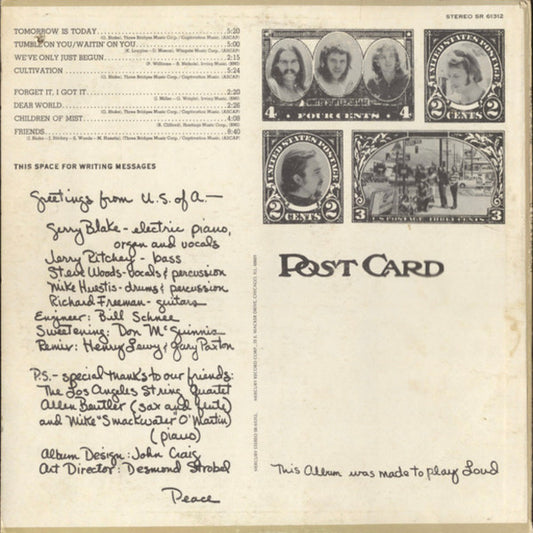 STEREO SR 61312
TOMORROW IS TODAY 5:20
(G. Blake), Three Bridges Music Corp./Captivation Music, (ASCAP)
TUMBLE ON YOU/WAITIN' ON YOU 5:00
WE'VE ONLY JUST BEGUN 2:15
(P. Williams - R. Nichols), Irving Music, (BMI)
CULTIVATION 5:24
(G. Blake), Three Bridges Music Corp./Captivation Music, (ASCAP)
FORGET IT, I GOT IT 2:20
(J. Miller - G. Wright), Irving Music, (BMI)
DEAR WORLD 2:26
(G. Blake), Three Bridges Music Corp./Captivation Music, (ASCAP)
CHILDREN OF MIST 4:08
FRIENDS 6:40
THIS SPACE FOR WRITING MESSAGES
Greetings from U.S. of A.—
Gerry Blake - electric piano,
organ and vocals
Jerry Ritchey - bass
Steve Woods - vocals & percussion
Mike Huestis - drums & percussion
Richard Freeman - guitars
Engineer: Bill Schnee
Sweetening: Don McGinnis
Remix: Henry Lewy & Gary Paxton
P.S. - special thanks to our friends:
The Los Angeles String Quartet
Allen Beutler (sax and flute)
and Mike "Smackwater O'Martin)
(piano)
Album Design: John Craig
Art Director: Desmond Strobel
Peace
4 FOUR CENTS 4
UNITED STATES POSTAGE
2 CENTS 2
UNITED STATES POSTAGE
2 CENTS 2
3 U.S. POSTAGE THREE CENTS 3
POST CARD
This Album was made to play Loud